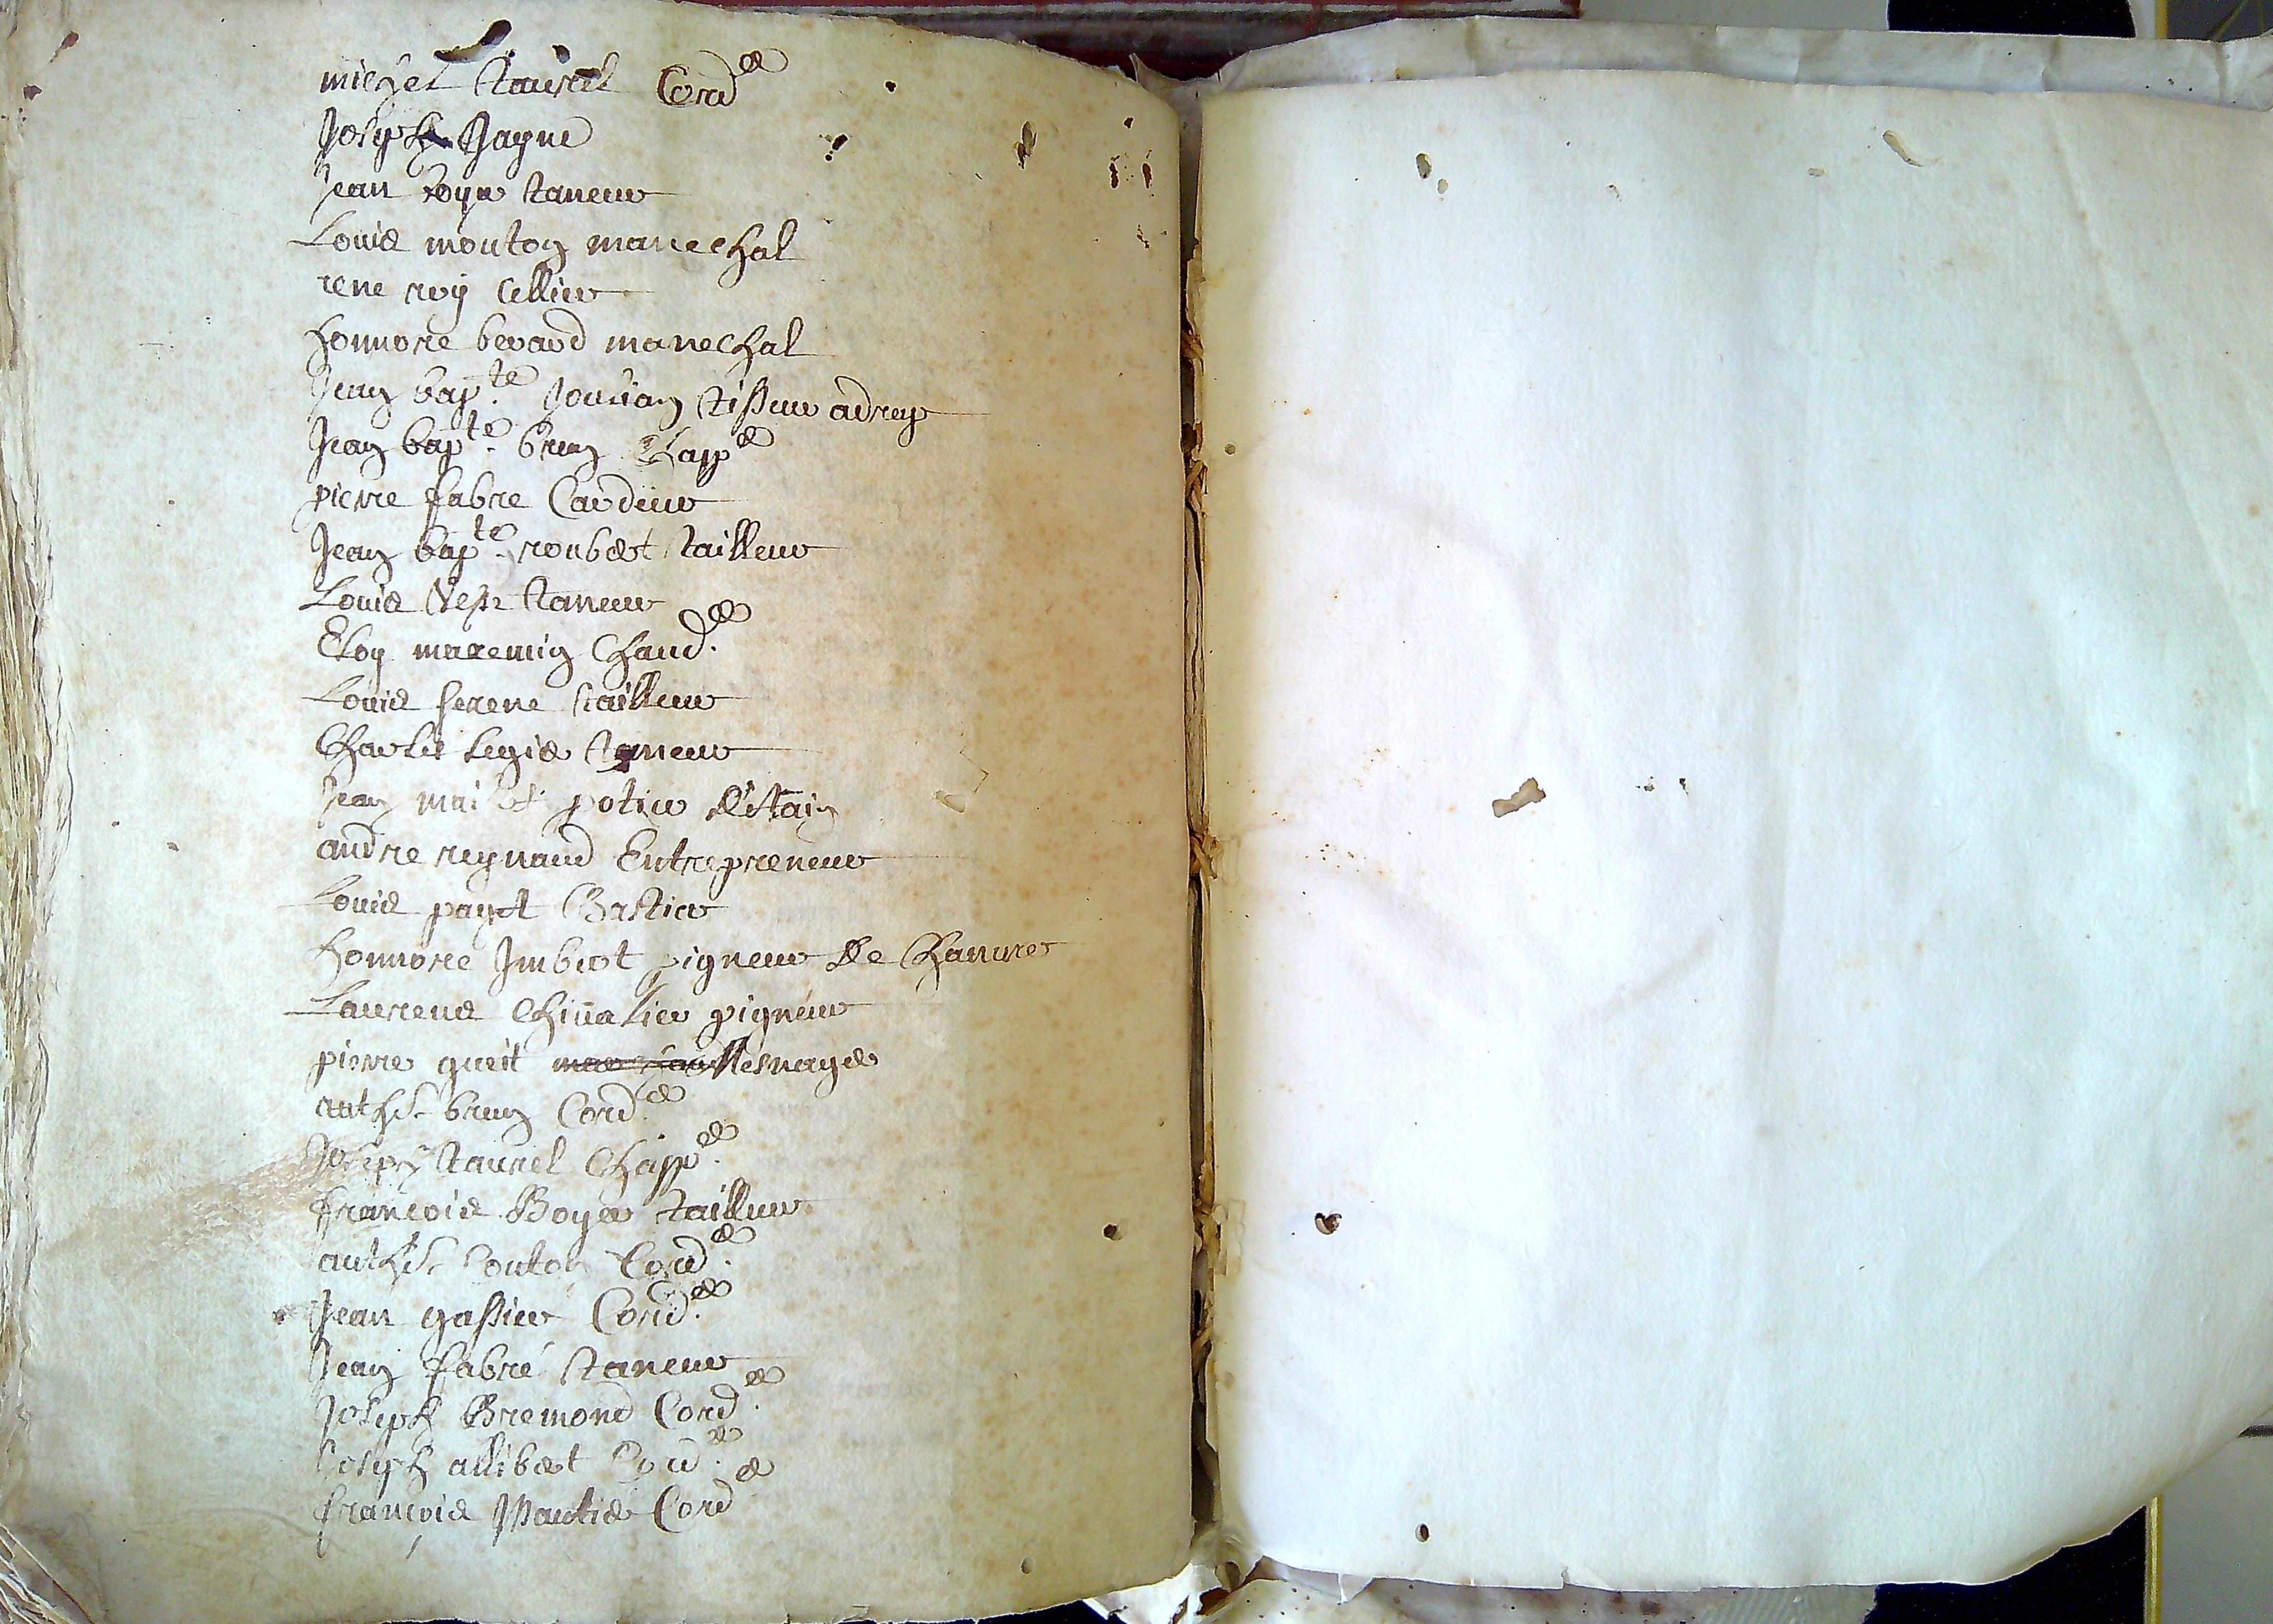 michel Taurel Cord.er
Joseph Jayne
Jean Roger taneur
Louis mouton marechal
rene roy cellier
honnore berard marechal
Jean bap.te Jourian tisseur adrey
Jean bap.te brun Chapp.er
pierre fabre Cardeur
Jean bap.te roubert tailleur
Louis taneur
Eloy maxemin Chaud.er
Louis serene tailleur
Charles Legier taneur
Jean potier d'Estain
andre reynaud Entrepreneur
Louis payet Bastier
honnore Imbert pigneur de Chanvres
Laurens Chivalier pigneur
pierre gueit mesnager
anth.e brun Cord.er
Joseph Taurel Chapp.er
francois Boyer tailleur
anth.e Couton Cord.er
Jean gassier Cord.er
Jean fabre taneur
Joseph Bremond Cord.er
Joseph allibert Cord.er
francois Martin Cord.er